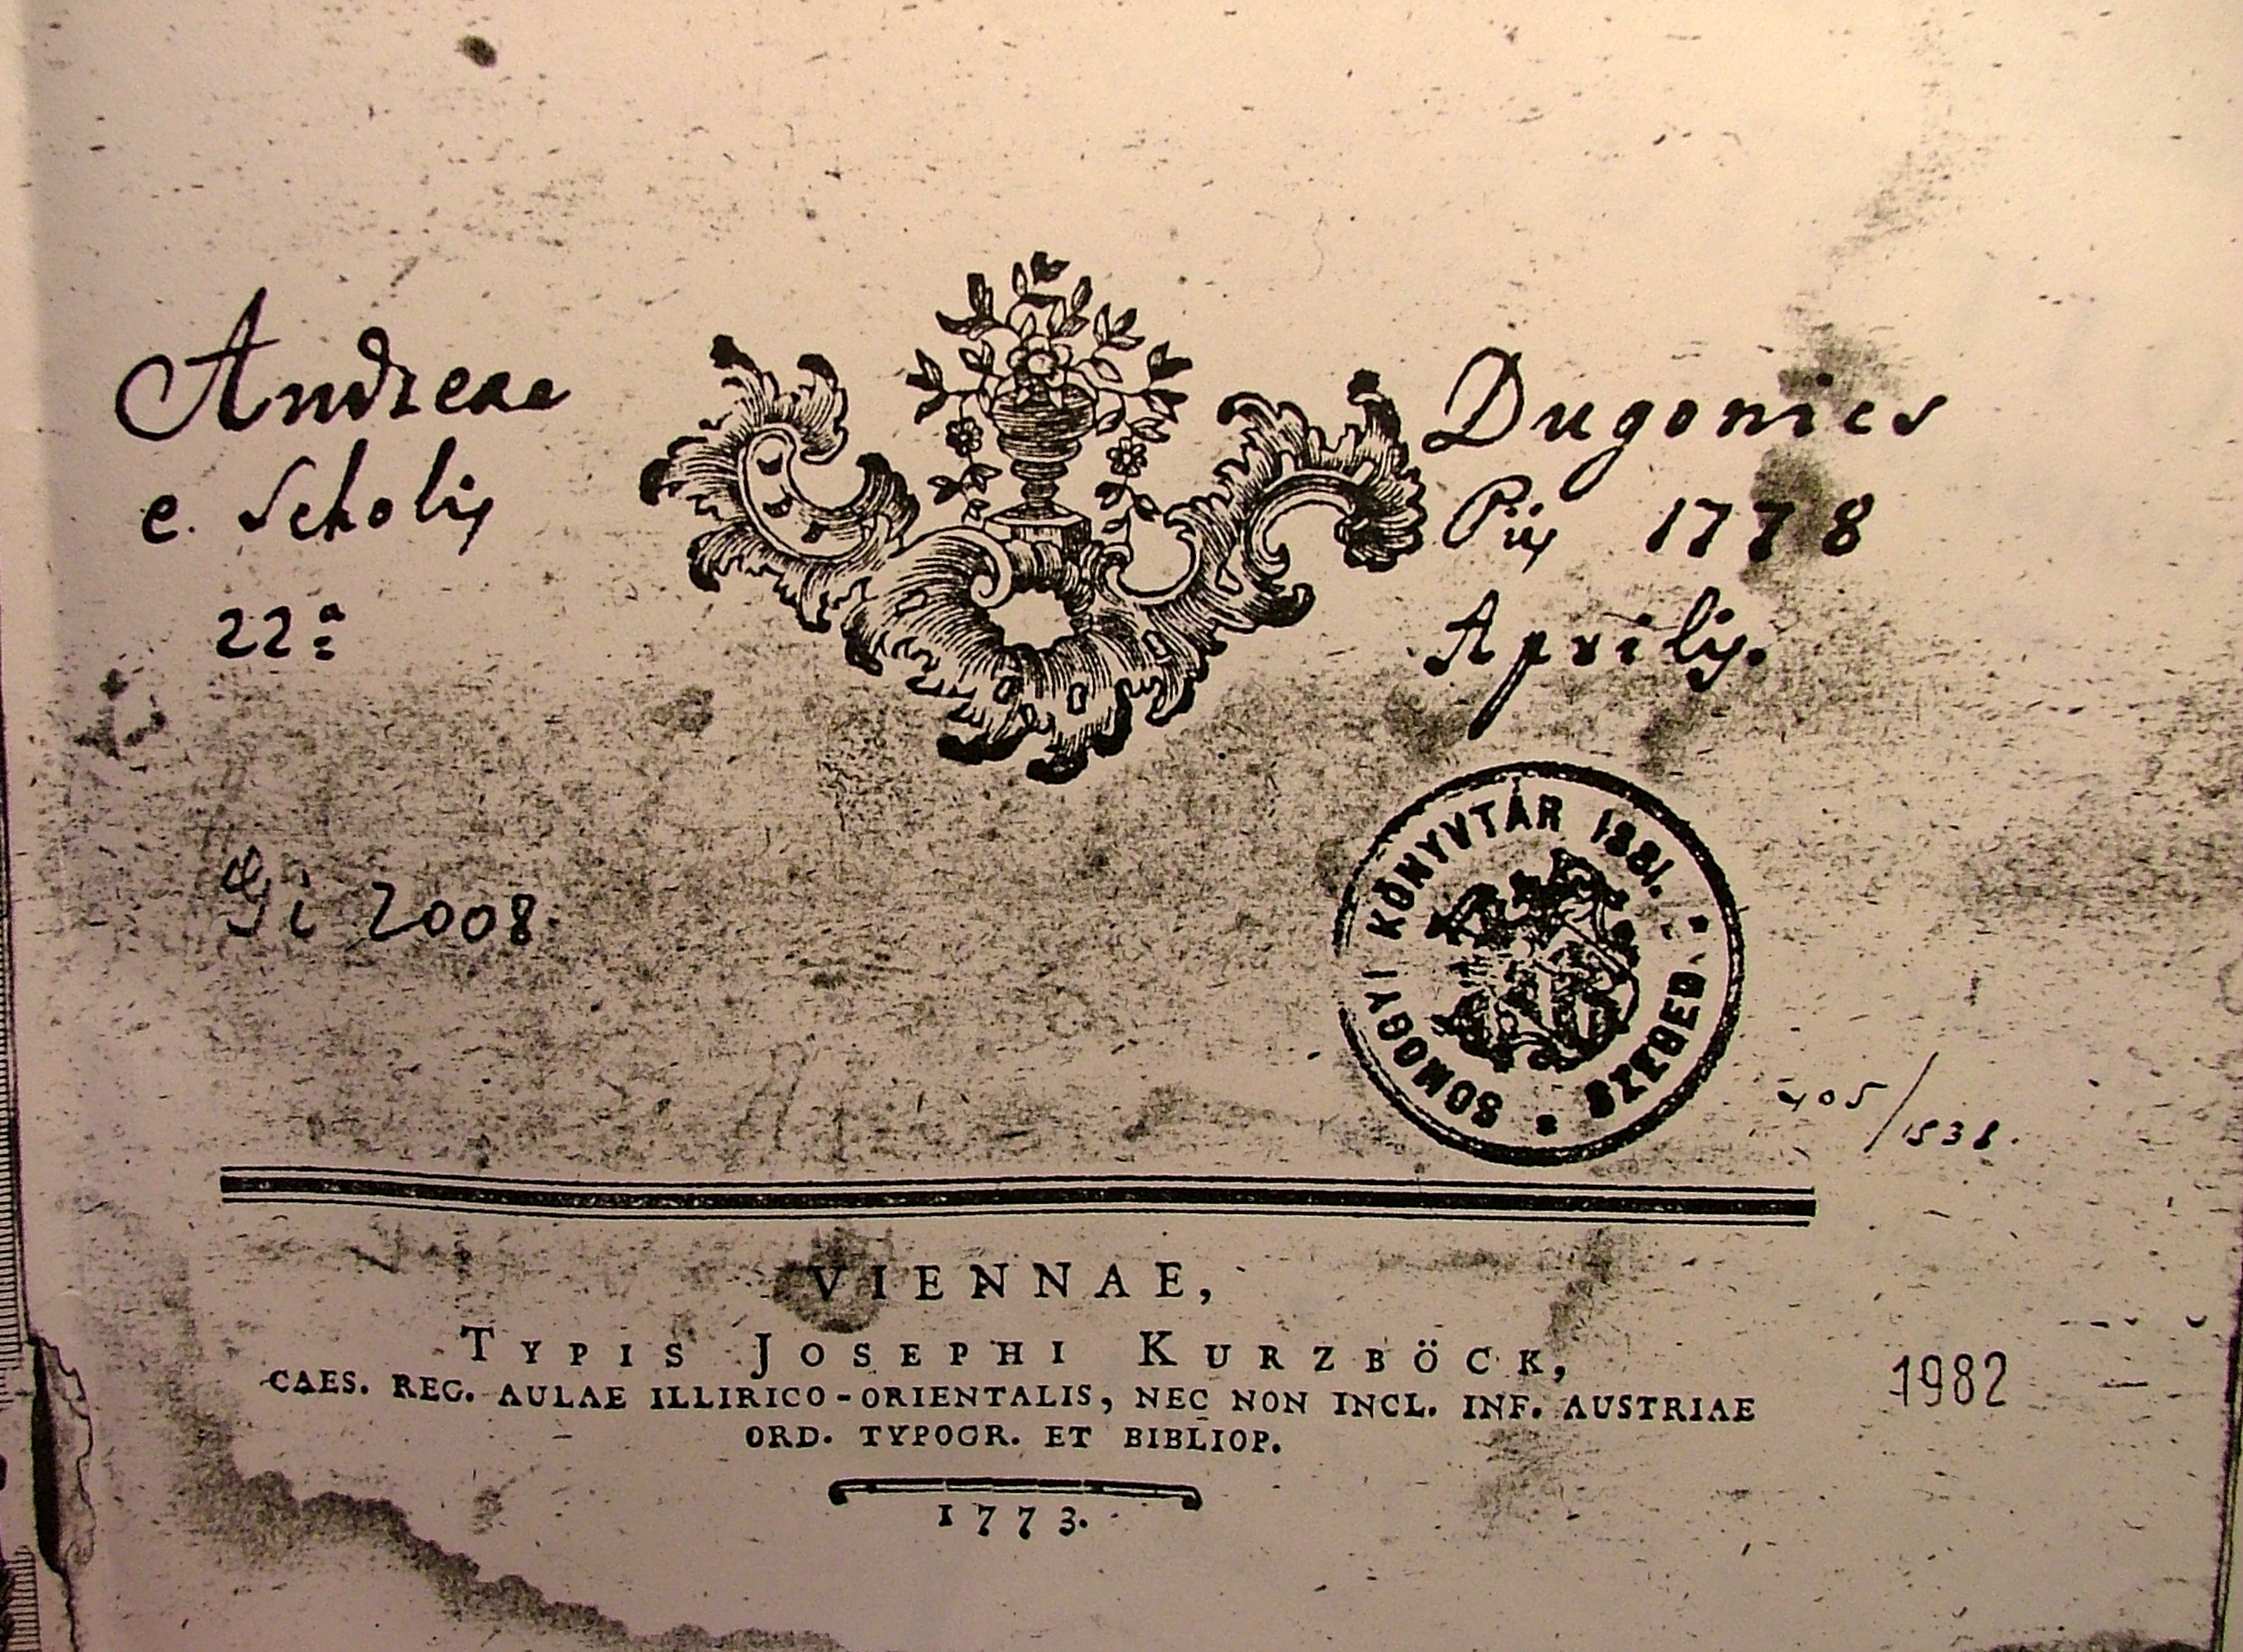 Andreae Dugonics
e Scholis Piis 1778
22ª Aprilis.
SOMOGYI KÖNYVTÁR 1881.
SZEGED
i 2008.
405/1538.
VIENNAE,
TYPIS JOSEPHI KURZBÖCK,
CAES. REG. AULAE ILLIRICO-ORIENTALIS, NEC NON INCL. INF. AUSTRIAE
ORD. TYPOGR. ET BIBLIOP.
1982
1773.